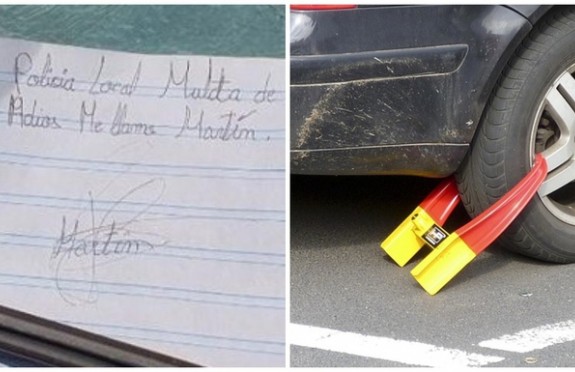 Policía Local Multa de
Adios Me llamo Martín.
Martín